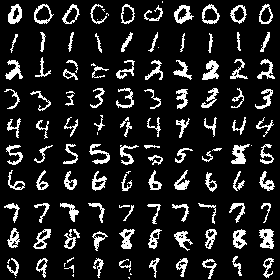 0 0 0 0 0 0 0 0 0 0
1 1 1 1 1 1 1 1 1 1
2 1 2 2 2 2 2 2 2 2
3 3 3 3 3 3 3 3 3 3
4 4 4 4 4 4 4 4 4 4
5 5 5 5 5 5 5 5 5 5
6 6 6 6 6 6 6 6 6 6
7 7 7 7 7 7 7 7 7 7
8 8 8 8 8 8 8 8 8
0 9 9 9 9 9 9 9 9 8